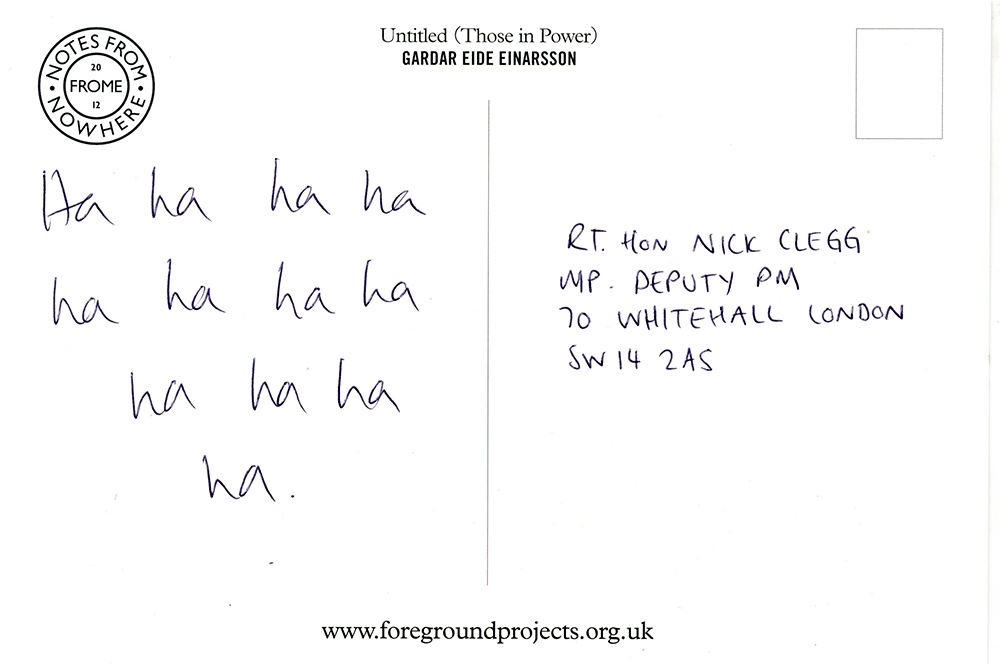 Untitled (Those in Power)
GARDAR EIDE EINARSSON
NOTES FROM NOWHERE
20
FROME
12
Ha ha ha ha
ha ha ha ha
ha ha ha
ha.
RT. HON NICK CLEGG
MP. DEPUTY PM
70 WHITEHALL LONDON
SW14 2AS
www.foregroundprojects.org.uk